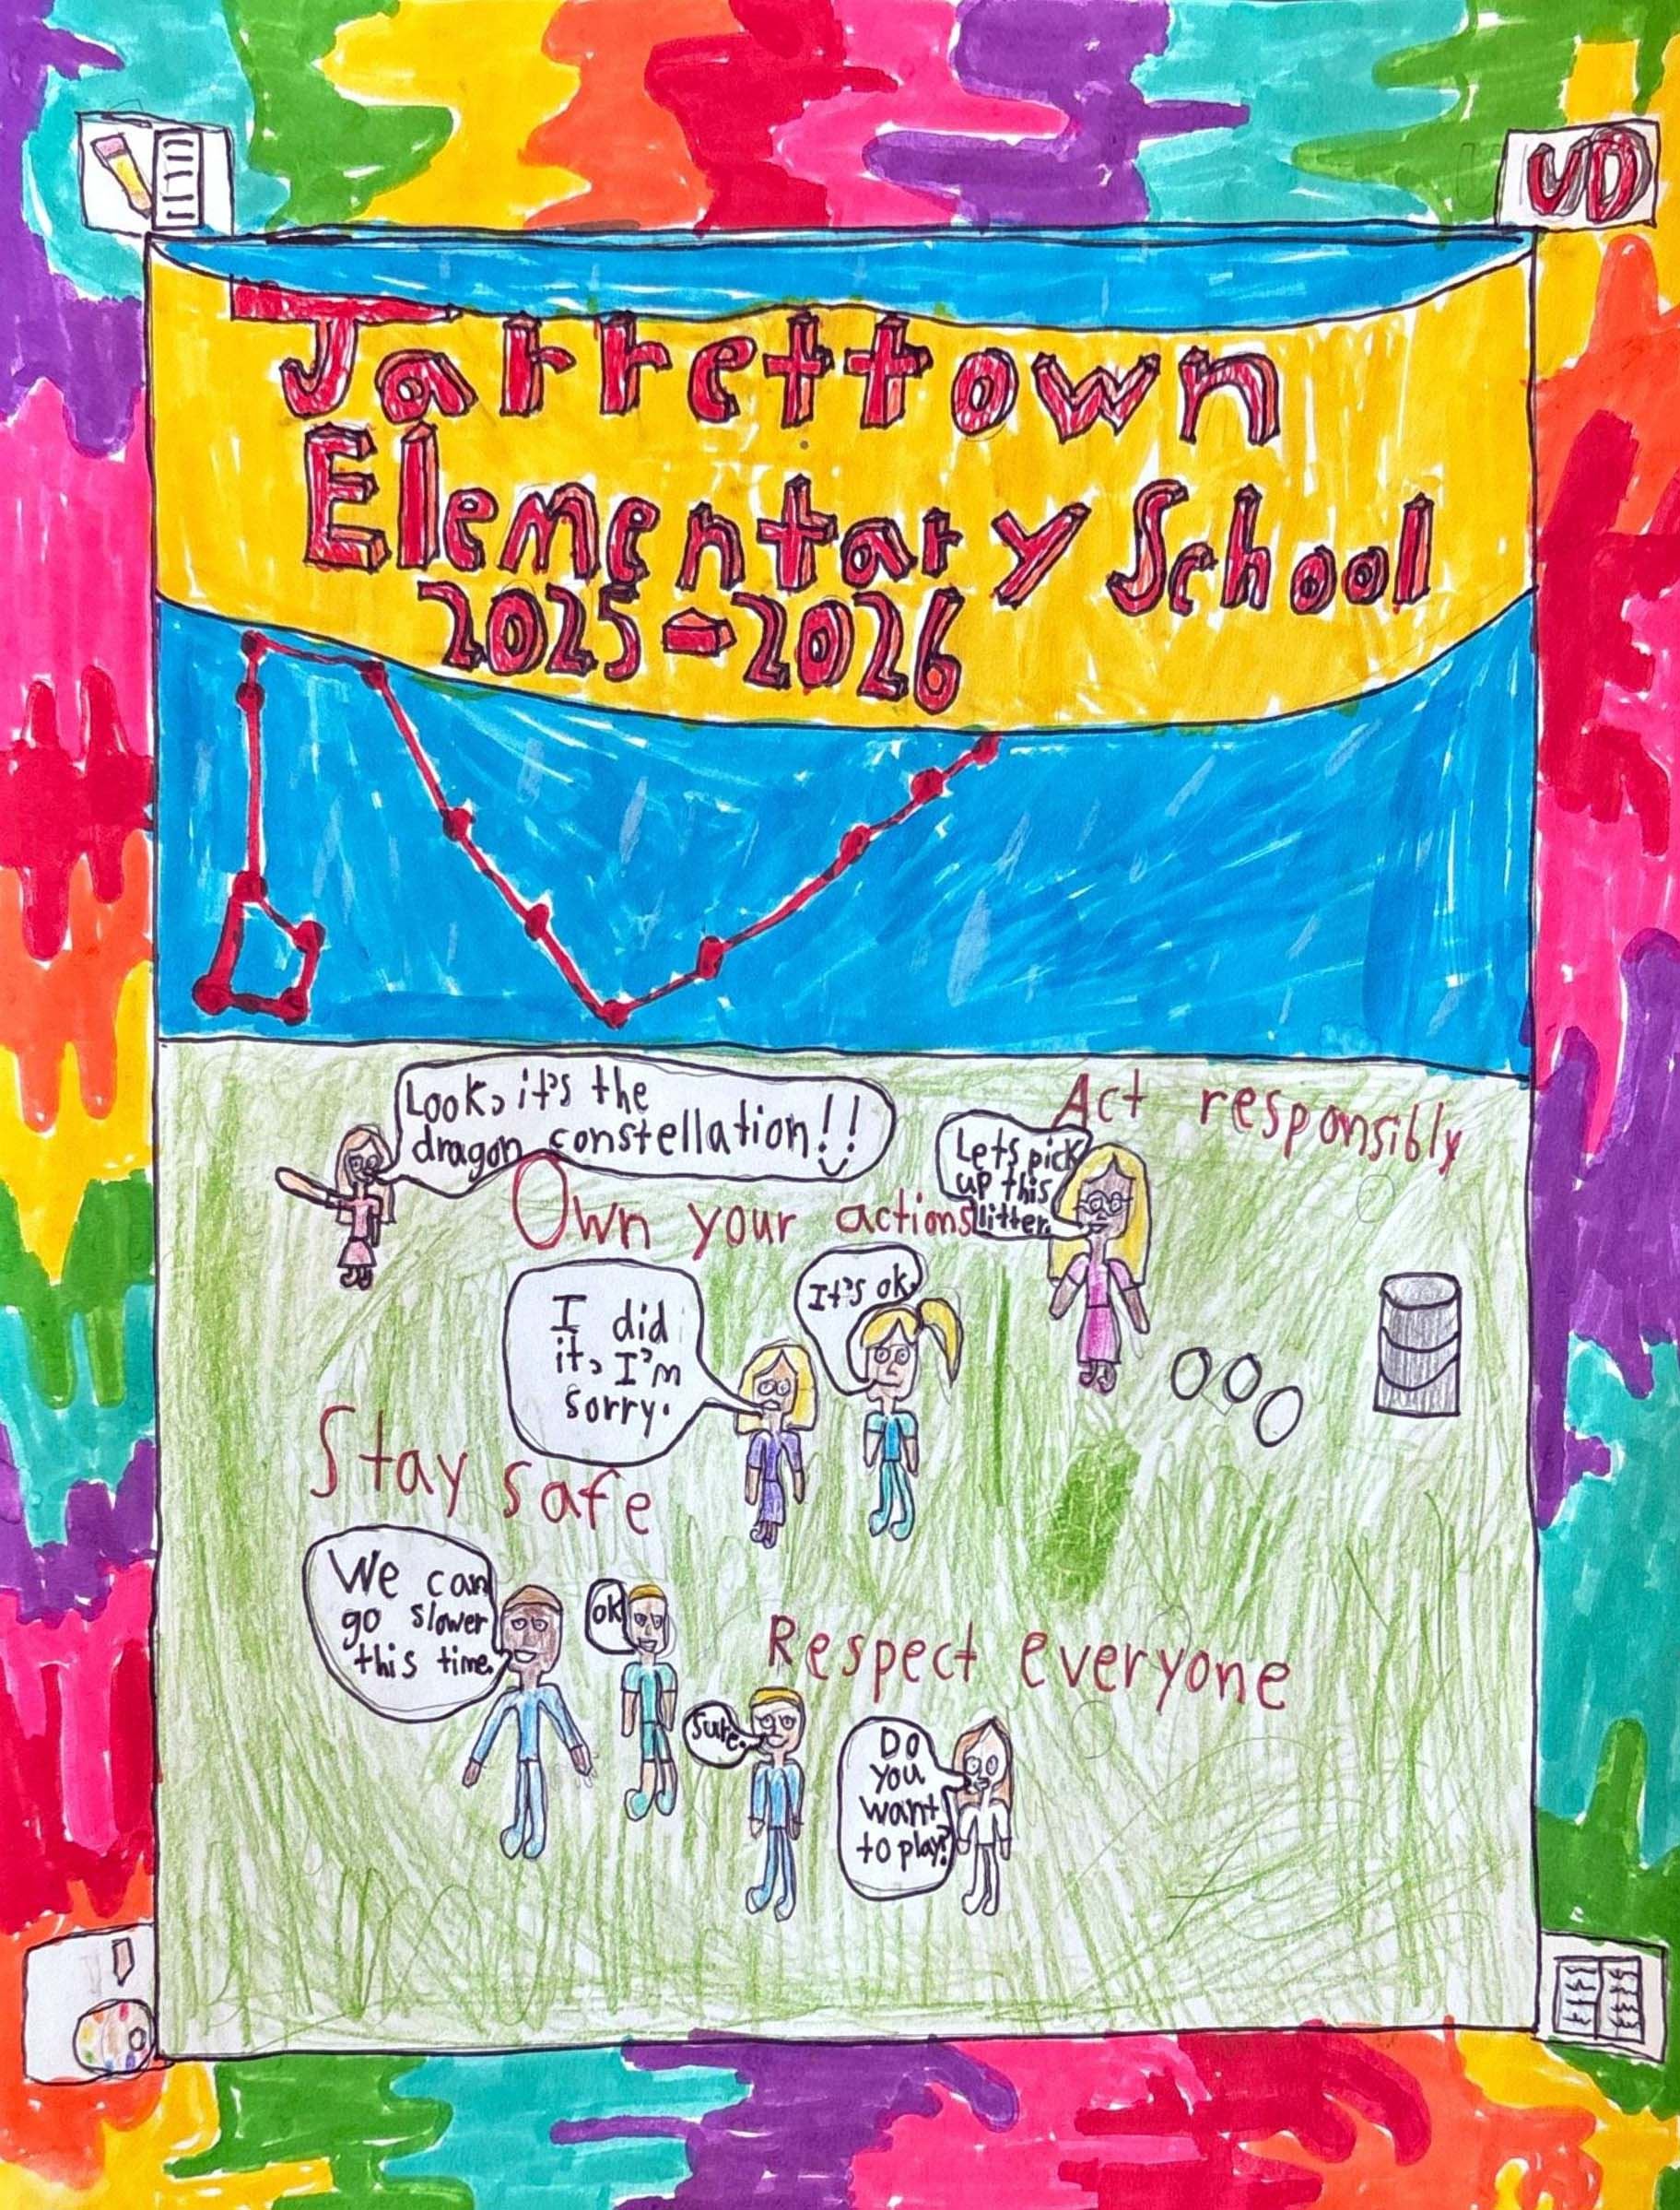 UD
Jarrettown
Elementary School
2025-2026
Look, it's the
dragon constellation!!
Act responsibly
Lets pick
up this
litter.
Own your actions
I did
it, I'm
sorry.
It's ok.
Stay safe
We can
go slower
this time.
ok
Respect everyone
Sure.
Do
you
want
to play?